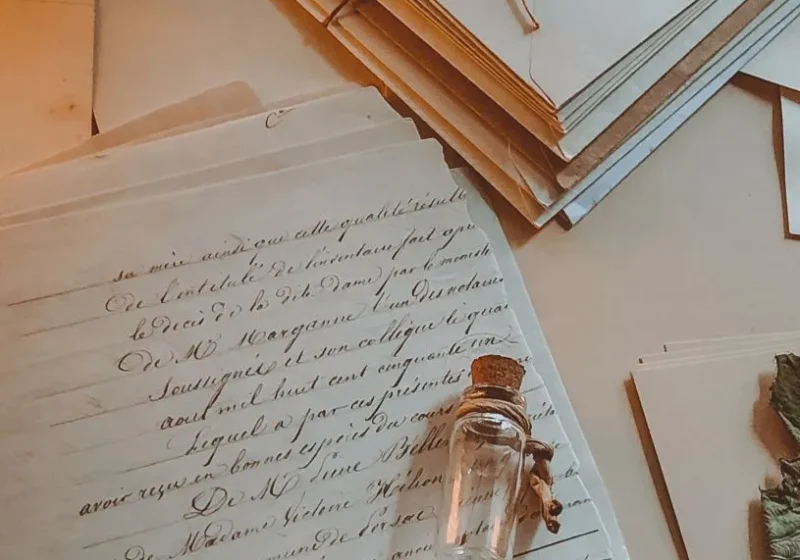 sa mère ainsi que cette qualité résulte
de l'intitulé de l'inventaire fait apr
le décès de la dite dame par le minist
de Mᵉ Marganne l'un des notaires
soussignés et son collègue le qua
aout mil huit cent cinquante un
Lequel a par ces présentes
avoir reçu en bonnes espèces du cours
De M
de Madame Victoire
mune de